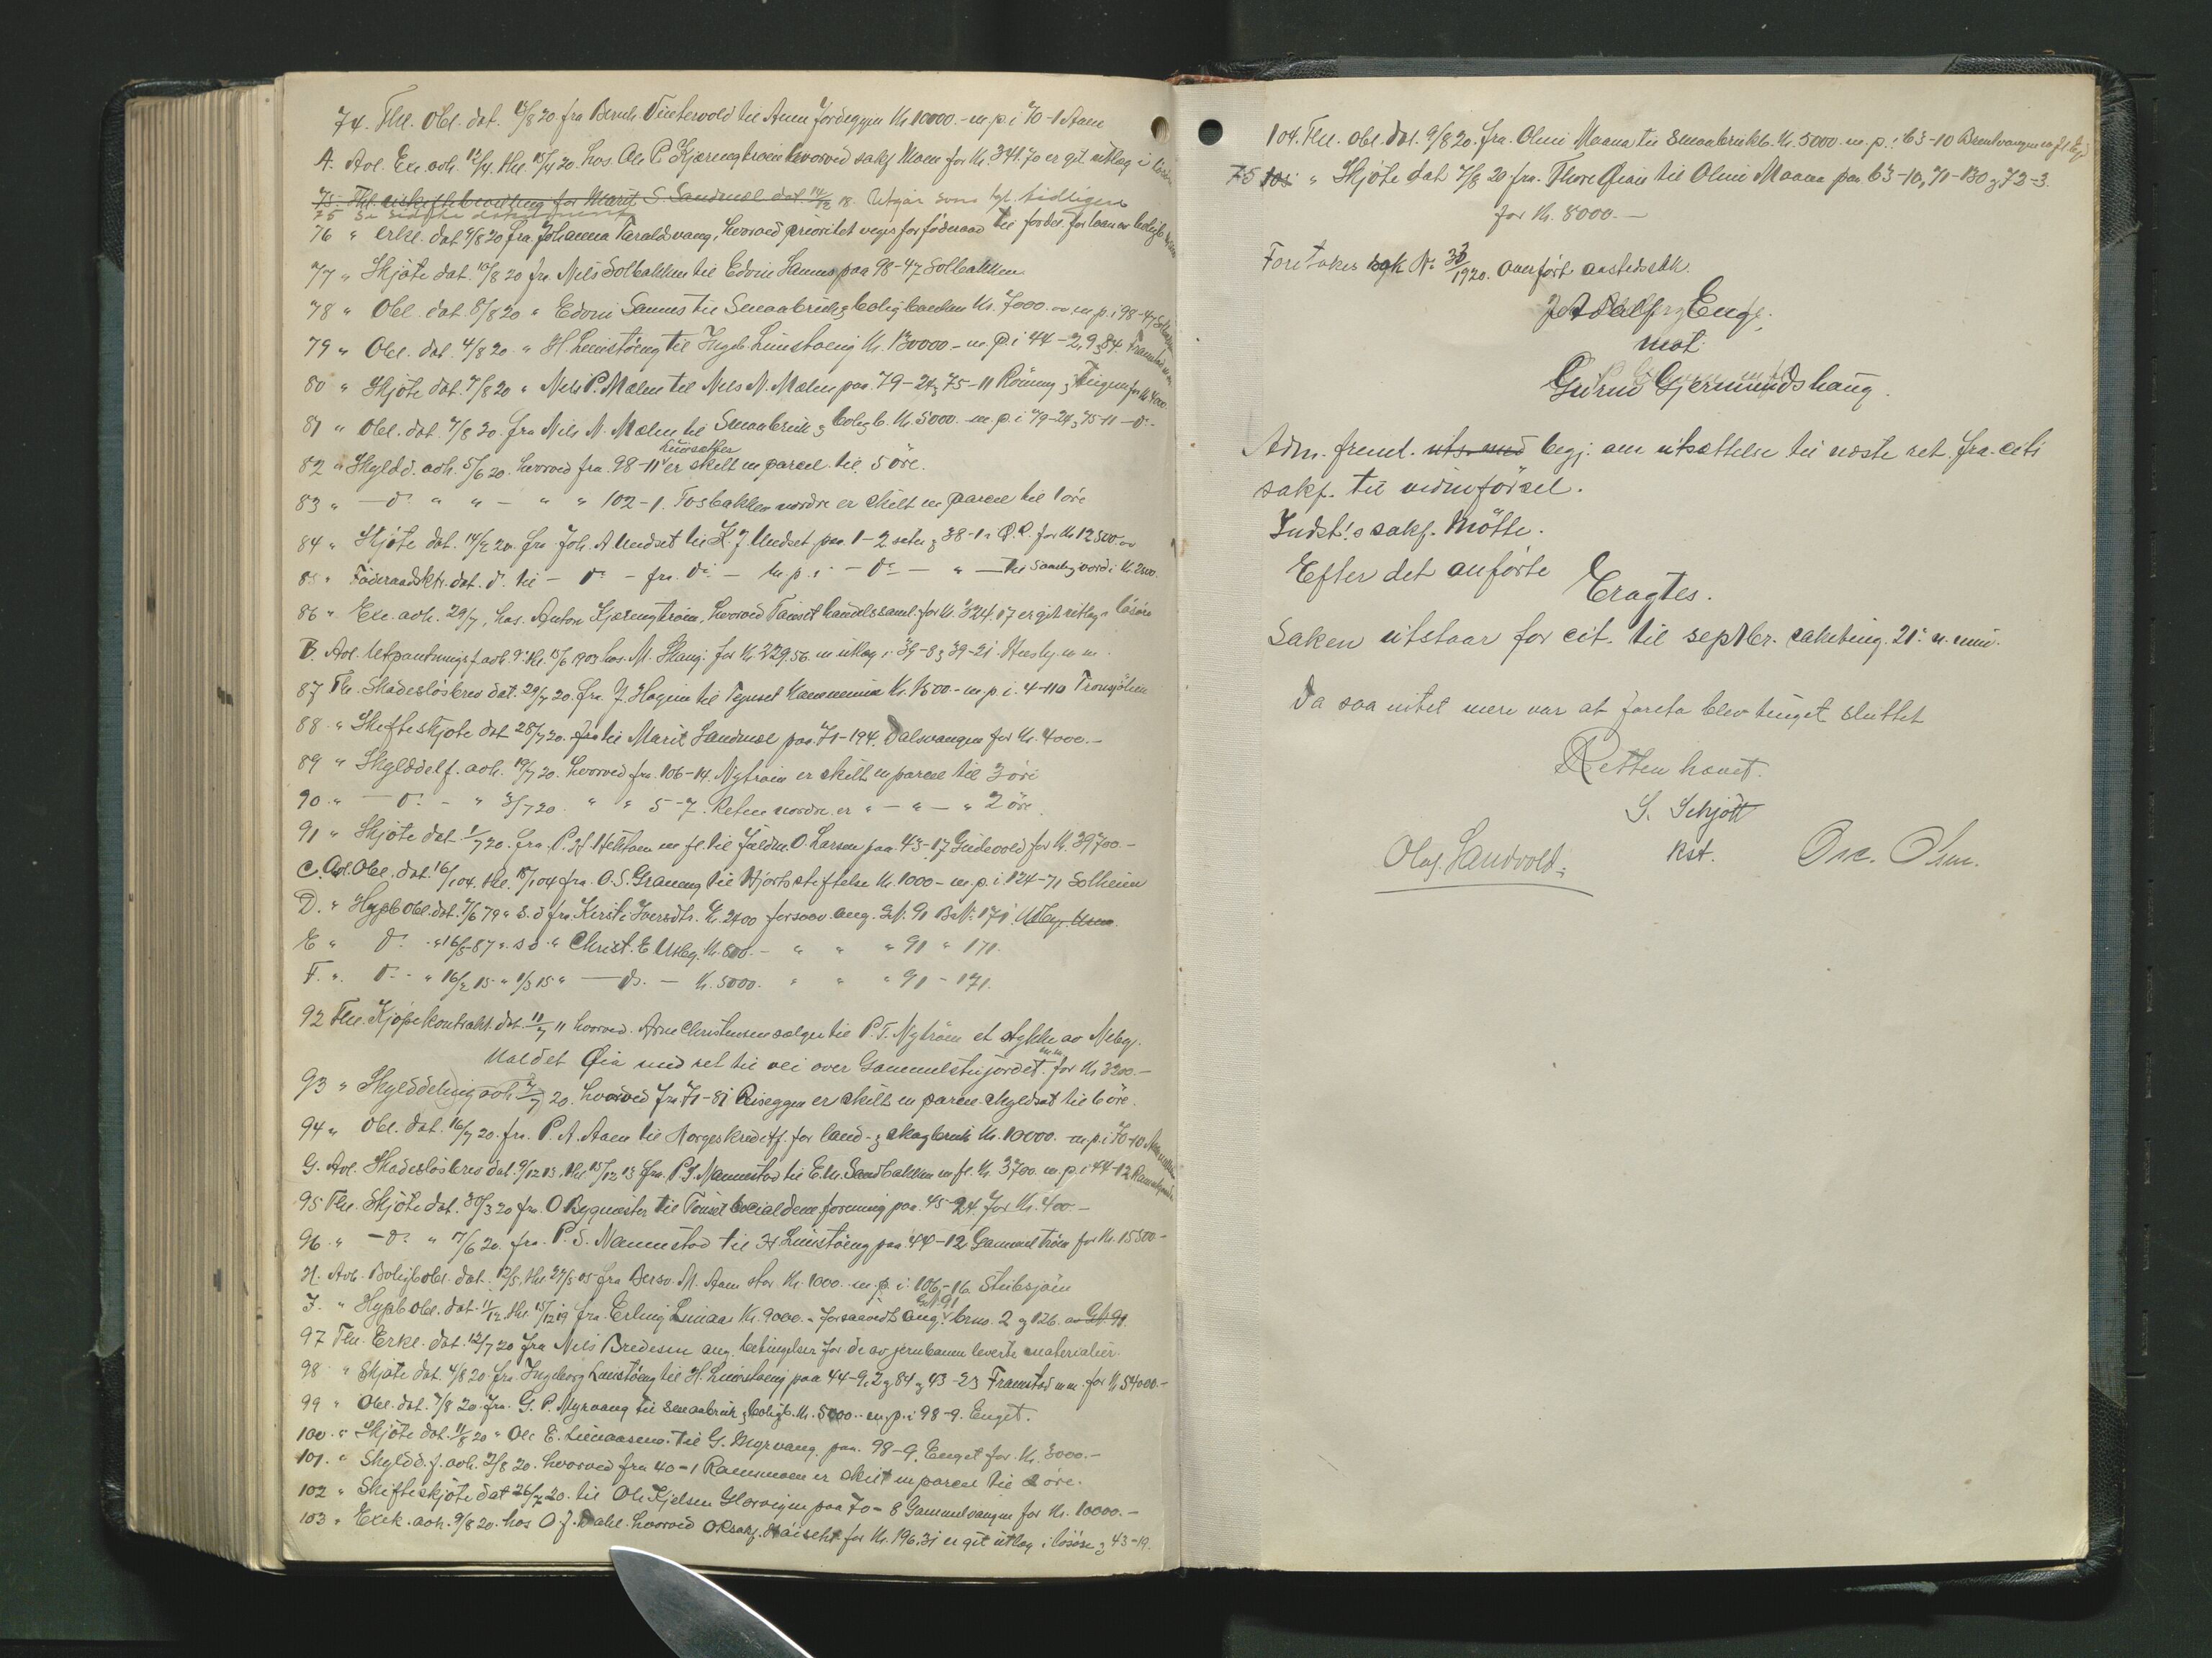 74. Thl. Obl. dat. 9/8 20 fra Bernh. Vintervold til Anne Jordegjen Kr 10000.- m. p. i 70-1 Aaen
A. Avl. Exe. avh. 12/4. thl. 15/4 20. hos. Ole P. Kjærengtrøen hvorved sakf. Moen for Kr. 341.70 er git utlæg i løsøre
75. Thl. uskiftebevilling for Marit S. Sandmæl dat 14/12 18. Utgår som tgl. tidligere
75 se sidste dokument
76 " Erkl. dat 9/8 20 fra Johanna Taraldvang, hvorved prioritet viges for föderaad til fordel for laan av boligb.
77 " Skjøte dat. 10/8 20 fra Nils Solbakken til Edvin Sannes paa 98-47 Solbakken
78 " Obl. dat. 8/8 20 " Edvin Sannes til Smaabruk & boligbanken Kr. 7000.- m p. i 98-47 Solbakken
79 " Obl. dat. 4/8 20 " H. Leinstöeng til Ingeb. Leinstoeng Kr. 130000 - m. p. i 44-2, 9 & 84. Framstad m.m.
80 " Skjøte dat. 7/8 20 " Nils P. Mælen til Nils N. Mælen paa 79-24 & 75-11 Rönning & Engen for Kr 4000
81 " Obl. dat. 7/8 20. fra Nils N. Mælen til Smaabruk & boligb. Kr. 5000. m. p. i 79-24 & 75-11 - do-
82 " Skyldd. avh. 5/6 20. hvorved fra 98-11 er skilt en parcel til 5 öre.
83 " - do " " - " " 102-1. Tosbakken nordre er skilt en parcel til 1 öre
84 " Skjøte dat. 14/2 20. fra Joh. A. Undset til K. J. Undset paa 1-2 seter & 38-1 i Q. R. for Kr 12500.-
85 " Föderaadsktr. dat. do. til - do - fra do - m. p. i - do - " - til samlig værdi Kr. 2500.
86 " Exe. avh. 29/7, hos. Anton Kjærengtrøen, hvorved Tønset handelssaml. for Kr. 324.07 er git utlæg i løsøre
B. Avl. Utpantningsf. avh. 9. thl. 15/6 1903 hos. M. Skaug. for Kr 229.56 m utlæg i 39-8 & 39-21. Husby m m.
87 Thl. Skadeslösbrev dat. 29/7 20. fra J. Hagen til Tynset Kommune Kr. 1500.- m. p. i. 4-110 Tronsjöhem
88 " Skifteskjøte dat 28/7 20. til Marit Sandmæl paa. 71-194. Dalsvangen for Kr. 4000.-
89 " Skylddelf. avh. 19/7 20. hvorved fra. 106-14. Nytröen er skilt en parcel til 3 öre
90 " - do - " 3/7 20. " " 5-7. Reten nordre er " - " - " 2 öre
91 " Skjøte dat 1/7 20. fra. P. H. Hektoen m fl. til fuldm. O. Larsen paa. 43-17 Gjetevold for Kr. 39700.-
C. Avl. Obl. dat. 16/1 04. thl. 18/1 04 fra. O. S. Graneng til Hjorts stiftelse Kr. 1000 - m. p. i 124-71 Solheim
D. " Hypb. Obl. dat. 7/6 79 " s. d fra. Kirsti Iversdtr. Kr. 2400 forsaav. ang. G.N. 91 B.N. 171
E " do. " 16/5 87 " s d. " Christ. E. Utbg. Kr. 800.- " " " 91 " 171.
F. " do. " 16/2 15. " 1/3 15 " - do. - Kr. 5000. " " " 91 - 171.
92 Thl. Kjöpekontrakt dat. 11/7 11 hvorved. Arne Christensen sælger til P. T. Nytröen et stykke av Nebg.
kaldet Øia med ret til vei over Gammelstujordet m.m. for Kr 3200.-
93 " Skylddeling avh 2/7 20. hvorved fra 71-81 Riseggen er skilt en parcel skyldsat til 6 öre.
94 " Obl. dat. 16/7 20. fra. P. A. Aaen til Norges kredittf. for land- & skogbruk Kr. 10000. - m. p. i 70-10
G. Avl. Skadeslösbrev dat. 9/12 13. thl. 15/12 13 fra. P. S. Nannestad til E. M. Sandbakken m fl. Kr. 3700. m. p. i 44-12
95 Thl. Skjøte dat. 30/3 20 fra. O Bygmester til Tönset Socialdem forening paa. 45-24 for Kr. 400.-
96 " - do " 7/6 20. fra. P. S. Nannestad til H Leinstöeng paa. 44-12 Gammeltröen for Kr. 15500-
H. Avl. Boligbobl. dat. 12/5. thl 27/5 05 fra Berso. M. Aaen stor Kr. 1000. m. p. i: 106-16 Stubsjöen
I. " Hypb obl. dat. 11/12. thl. 15/12 19 fra. Erling Linaas Kr. 9000. - forsaavidt ang. G.N. 91 brno. 2 & 126. av GN 91
97 Thl. Erkl. dat. 12/7 20 fra Nils Bredesen ang. betingelser for de av jernbanen leverte materialier.
98 " Skjøte dat. 4/8 20. fra. Ingeborg Leinstöeng til H. Leinstoeng paa 44-9, 2 & 84 & 43-23 Framstad m m. for Kr 54000.-
99 " Obl. dat. 7/8 20. fra. G. P. Myrvang til Smaabruk & boligb. Kr. 5000.- m. p. i 98-9. Enget.
100 " Skjøte dat. 11/8 20 " Ole E. Linaasen. til G. Myrvang. paa. 98-9. Enget for Kr. 3000.-
101. " Skyldd. f. avh. 2/8 20. hvorved fra 40-1 Ramsmoen er skilt en parcel til 2 öre.
102 " Skifteskjøte dat 26/7 20. til Ole Kjelsen Glorvigen paa 70-8 Gammelvangen for Kr. 10000.-
103 " Exek. avh. 9/8 20. hos O. J. Dahl. hvorved O.R.sakf. for Kr. 196.31 er git utlæg i løsøre & 43-19.
104. Thl. obl. dat. 9/8 20. fra. Olmi Maana til Smaabrukb. Kr. 5000. m. p. i 63-10
75 105 " Skjøte dat 7/8 20 fra. Thore Qian til Olmi Maana paa 63-10, 71-130 & 72-3.
for Kr. 8000.-
Foretokes sak No 33/1920. overført aastedsbk.
Enge.
mot
Gurine Gjermundshaug.
Adm. freml. uts. med begj. om utsættelse til næste ret fra cits
sakf. til vidneførsel.
Indst.s sakf. mötte.
Efter det anførte
Eragtes.
Saken utstaar for cit. til septbr. saketing. 21. n. mn.
Da saa intet mere var at foreta blev tinget sluttet
Retten hævet.
S. Schjött
kst.
Olaf Sandvold.
Osc. Olsen.